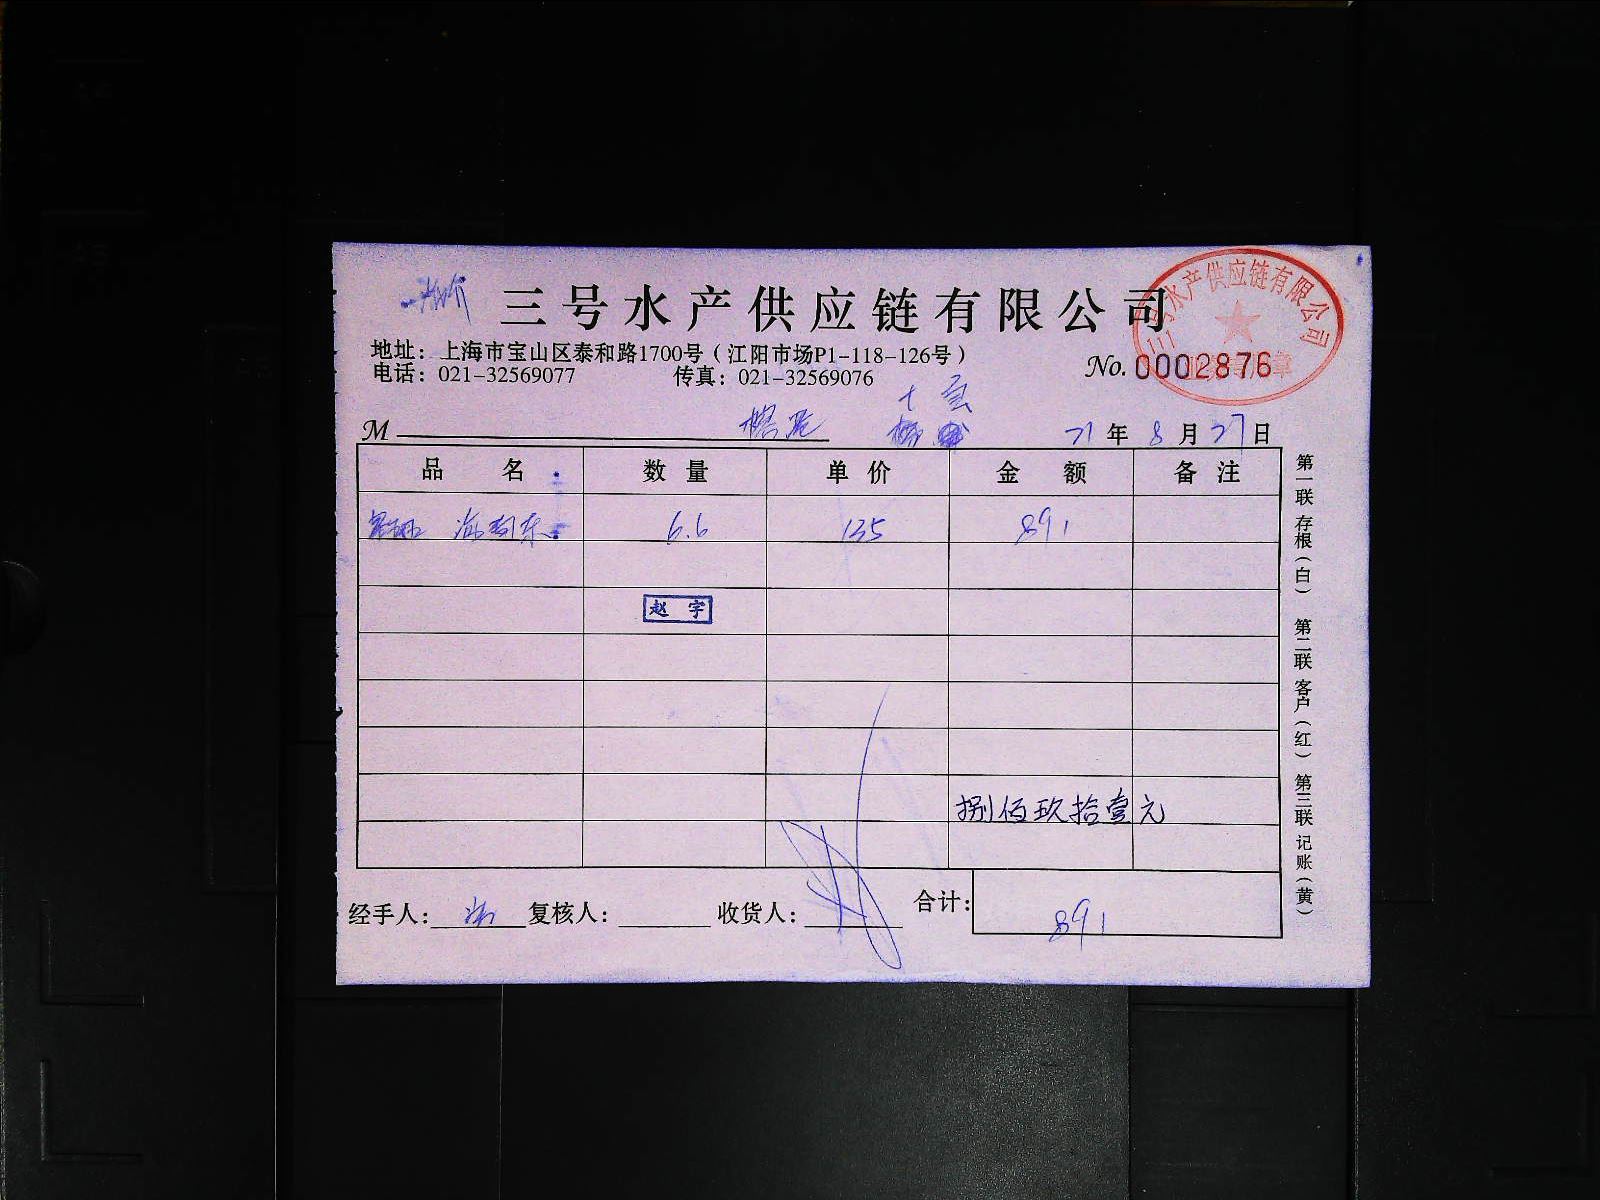 三号水产供应链有限公司
地址：上海市宝山区泰和路1700号（江阳市场P1-118-126号）
电话：021-32569077 传真：021-32569076
No. 0002876
三号水产供应链有限公司
M
21年8月27日
品名 数量 单价 金额 备注
6.6 135 891
赵宇
捌佰玖拾壹元
经手人： 复核人： 收货人： 合计： 891
第一联 存根（白） 第二联 客户（红） 第三联 记账（黄）